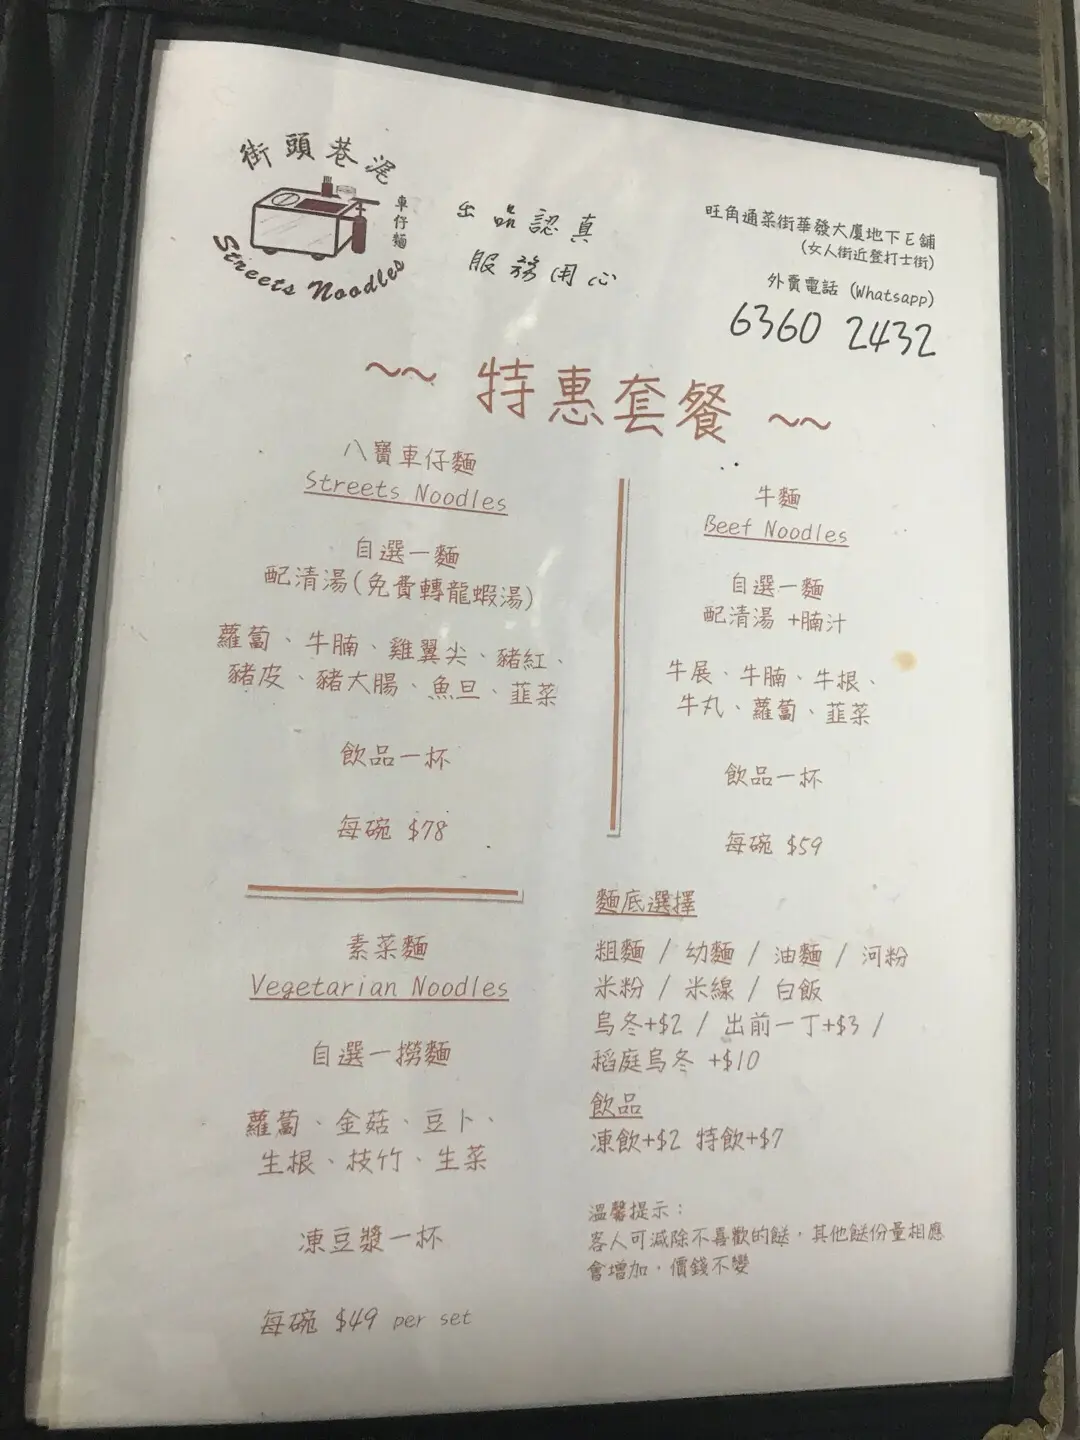 街頭巷浘
車仔麵
Streets Noodles
出品認真
服務用心
旺角通菜街華發大廈地下E舖
(女人街近登打士街)
外賣電話 (Whatsapp)
6360 2432
~~ 特惠套餐 ~~
八寶車仔麵
Streets Noodles
自選一麵
配清湯(免費轉龍蝦湯)
蘿蔔、牛腩、雞翼尖、豬紅、
豬皮、豬大腸、魚旦、韮菜
飲品一杯
每碗 $78
牛麵
Beef Noodles
自選一麵
配清湯 +腩汁
牛展、牛腩、牛根、
牛丸、蘿蔔、韮菜
飲品一杯
每碗 $59
素菜麵
Vegetarian Noodles
自選一撈麵
蘿蔔、金菇、豆卜、
生根、枝竹、生菜
凍豆漿一杯
每碗 $49 per set
麵底選擇
粗麵 / 幼麵 / 油麵 / 河粉
米粉 / 米線 / 白飯
烏冬+$2 / 出前一丁+$3 /
稻庭烏冬 +$10
飲品
凍飲+$2 特飲+$7
溫馨提示：
客人可減除不喜歡的餸，其他餸份量相應
會增加，價錢不變